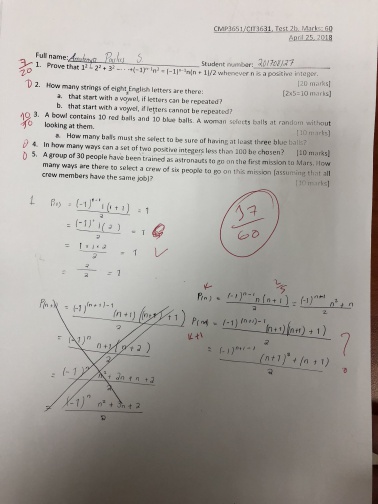 CMP3651/CIT3631. Test 2b. Marks: 60
April 25, 2018
Full name: S Student number:
7/20 1. Prove that 1² – 2² + 3² - ··· +(-1)ⁿ⁻¹n² = (-1)ⁿ⁻¹n(n + 1)/2 whenever n is a positive integer.
[20 marks]
0 2. How many strings of eight English letters are there: [2x5=10 marks]
a. that start with a vowel, if letters can be repeated?
b. that start with a vowel, if letters cannot be repeated?
10/10 3. A bowl contains 10 red balls and 10 blue balls. A woman selects balls at random without
looking at them. [10 marks]
a. How many balls must she select to be sure of having at least three blue balls?
0 4. In how many ways can a set of two positive integers less than 100 be chosen? [10 marks]
0 5. A group of 30 people have been trained as astronauts to go on the first mission to Mars. How
many ways are there to select a crew of six people to go on this mission (assuming that all
crew members have the same job)? [10 marks]
17/60
1. P(1) = (-1)¹⁻¹ 1(1+1)/2 = 1
= (-1)⁰ 1(2)/2 = 1
= 1×1×2/2 = 1 ✓
= 2/2 = 1
P(n) = (-1)ⁿ⁻¹ n(n+1)/2 = (-1)ⁿ⁻¹ n²+n/2
P(n+1) = (-1)⁽ⁿ⁺¹⁾⁻¹ (n+1)((n+1)+1)/2
P(n+1) = (-1)⁽ⁿ⁺¹⁾⁻¹ (n+1)(n+1)+1)/2
k+1
= (-1)ⁿ n+1(n+2)/2
= (-1)ⁿ⁺¹⁻¹ (n+1)²+(n+1)/2 ?
= (-1)ⁿ n²+2n+n+2/2
= (-1)ⁿ n²+3n+2/2